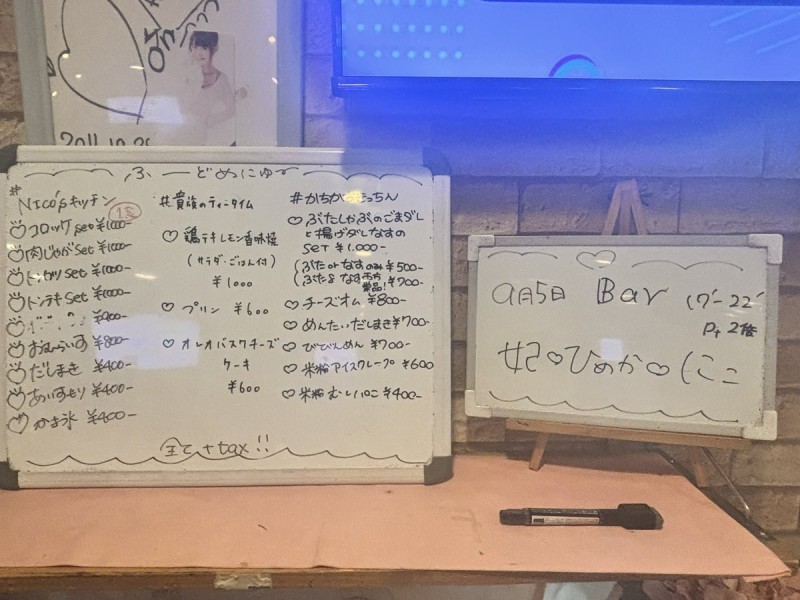 2011.10.2
ふーどめにゅー
#NICO'sキッチン
コロッケset ¥1000-
肉じゃがset ¥1000-
トンカツset ¥1000-
トンテキset ¥1000-
¥900-
おむらいす ¥800-
だしまき ¥400-
あいすもり ¥400-
かき氷 ¥400-
#貴族のティータイム
♡ 鶏テキレモン香味焼
(サラダ・ごはん付)
¥1000
♡ プリン ¥600
♡ オレオバスクチーズ
ケーキ
¥600
#かちがっきっちん
♡ ぶたしゃぶのごまダレ
と揚げダしなすの
set ¥1.000-
(ぶたorなすのみ ¥500-
(ぶた&なす両方
単品! ¥700-
♡ チーズオム ¥800-
♡ めんたいだしまき ¥700-
♡ びびんめん ¥700-
♡ 米粉アイスクレープ ¥600
♡ 米粉むしパン ¥400-
全て+tax!!
9月5日 Bar 17-22
Pt 2倍
妃♡ひめか♡にこ